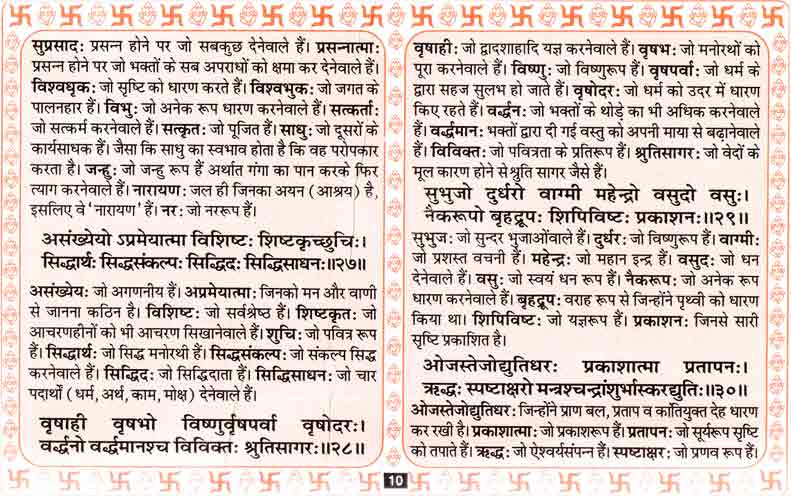 सुप्रसाद: प्रसन्न होने पर जो सबकुछ देनेवाले हैं। प्रसन्नात्मा:
प्रसन्न होने पर जो भक्तों के सब अपराधों को क्षमा कर देनेवाले हैं।
विश्वधृक: जो सृष्टि को धारण करते हैं। विश्वभुक: जो जगत के
पालनहार हैं। विभु: जो अनेक रूप धारण करनेवाले हैं। सत्कर्ता:
जो सत्कर्म करनेवाले हैं। सत्कृत: जो पूजित हैं। साधु: जो दूसरों के
कार्यसाधक हैं। जैसा कि साधु का स्वभाव होता है कि वह परोपकार
करता है। जन्हु: जो जन्हु रूप हैं अर्थात गंगा का पान करके फिर
त्याग करनेवाले हैं। नारायण: जल ही जिनका अयन (आश्रय) है,
इसलिए वे 'नारायण' हैं। नर: जो नररूप हैं।
असंख्येयो ऽप्रमेयात्मा विशिष्ट: शिष्टकृच्छुचि:।
सिद्धार्थ: सिद्धसंकल्प: सिद्धिद: सिद्धिसाधन:॥२७॥
असंख्येय: जो अगणनीय हैं। अप्रमेयात्मा: जिनको मन और वाणी
से जानना कठिन है। विशिष्ट: जो सर्वश्रेष्ठ हैं। शिष्टकृत: जो
आचरणहीनों को भी आचरण सिखानेवाले हैं। शुचि: जो पवित्र रूप
हैं। सिद्धार्थ: जो सिद्ध मनोरथी हैं। सिद्धसंकल्प: जो संकल्प सिद्ध
करनेवाले हैं। सिद्धिद: जो सिद्धिदाता हैं। सिद्धिसाधन: जो चार
पदार्थों (धर्म, अर्थ, काम, मोक्ष) देनेवाले हैं।
वृषाही वृषभो विष्णुर्वृषपर्वा वृषोदर:।
वर्द्धनो वर्द्धमानश्च विविक्त: श्रुतिसागर:॥२८॥
वृषाही: जो द्वादशाहादि यज्ञ करनेवाले हैं। वृषभ: जो मनोरथों को
पूरा करनेवाले हैं। विष्णु: जो विष्णुरूप हैं। वृषपर्वा: जो धर्म के
द्वारा सहज सुलभ हो जाते हैं। वृषोदर: जो धर्म को उदर में धारण
किए रहते हैं। वर्द्धन: जो भक्तों के थोड़े का भी अधिक करनेवाले
हैं। वर्द्धमान: भक्तों द्वारा दी गई वस्तु को अपनी माया से बढ़ानेवाले
हैं। विविक्त: जो पवित्रता के प्रतिरूप हैं। श्रुतिसागर: जो वेदों के
मूल कारण होने से श्रुति सागर जैसे हैं।
सुभुजो दुर्धरो वाग्मी महेन्द्रो वसुदो वसु:।
नैकरूपो बृहद्रूप: शिपिविष्ट: प्रकाशन:॥२९॥
सुभुज: जो सुन्दर भुजाओंवाले हैं। दुर्धर: जो विष्णुरूप हैं। वाग्मी:
जो प्रशस्त वचनी हैं। महेन्द्र: जो महान इन्द्र हैं। वसुद: जो धन
देनेवाले हैं। वसु: जो स्वयं धन रूप हैं। नैकरूप: जो अनेक रूप
धारण करनेवाले हैं। बृहद्रूप: वराह रूप से जिन्होंने पृथ्वी को धारण
किया था। शिपिविष्ट: जो यज्ञरूप हैं। प्रकाशन: जिनसे सारी
सृष्टि प्रकाशित है।
ओजस्तेजोद्युतिधर: प्रकाशात्मा प्रतापन:।
ऋद्ध: स्पष्टाक्षरो मन्त्रश्चन्द्रांशुर्भास्करद्युति:॥३०॥
ओजस्तेजोद्युतिधर: जिन्होंने प्राण बल, प्रताप व कांतियुक्त देह धारण
कर रखी है। प्रकाशात्मा: जो प्रकाशरूप हैं। प्रतापन: जो सूर्यरूप सृष्टि
को तपाते हैं। ऋद्ध: जो ऐश्वर्यसंपन्न हैं। स्पष्टाक्षर: जो प्रणव रूप हैं।
10